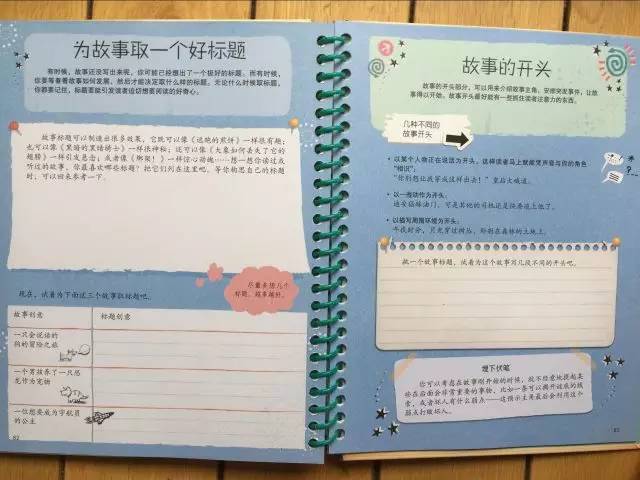 为故事取一个好标题
有时候，故事还没写出来呢，你可能已经想出了一个极好的标题。而有时候，
你要等着看故事如何发展，然后才能决定取什么样的标题。无论什么时候取标题，
你都要记住，标题要能引发读者迫切想要阅读的好奇心。
故事标题可以制造出很多效果，它既可以像《逃跑的煎饼》一样很有趣；
也可以像《黑暗的里暗绣士》一样很神秘；还可以像《大象如何丢失了它的
翅膀》一样引发悬念；或者像《绑架！》一样惊心动魄……想一想你读过或
听过的故事，你最喜欢哪些标题？把它们列在这里吧，等你构思自己的标题
时，可以回来参考一下。
尽量多想几个
标题，越多越好。
现在，试着为下面这三个故事取标题吧。
故事创意
标题创意
一只会说话的
狗的冒险之旅
一个男孩养了一只恐
龙作为宠物
一位想要成为宇航员
的公主
82
故事的开头
故事的开头部分，可以用来介绍故事主角、安排突发事件，让故
事得以开始。故事开头最好能有一些抓住读者注意力的东西。
几种不同的
故事开头
• 以某个人物正在说话为开头，这样读者马上就能凭声音与你的角色
“相识”：
“你别想让我穿成这样出去！”皇后大喊道。
• 以一些动作为开头：
迪安猛踩油门，可是其他的司机还是快要追上他了。
• 以描写周围环境为开头：
午夜时分，月光穿过树丛，照射在森林的土地上。
挑一个故事标题，试着为这个故事写几段不同的开头吧。
埋下伏笔
你可以考虑在故事刚开始的时候，就不经意地提起某
些在后面会非常重要的事物，比如一条可以揭开谜底的线
索，或者坏人有什么弱点——这预示主角最后会利用这个
弱点打败坏人。
83